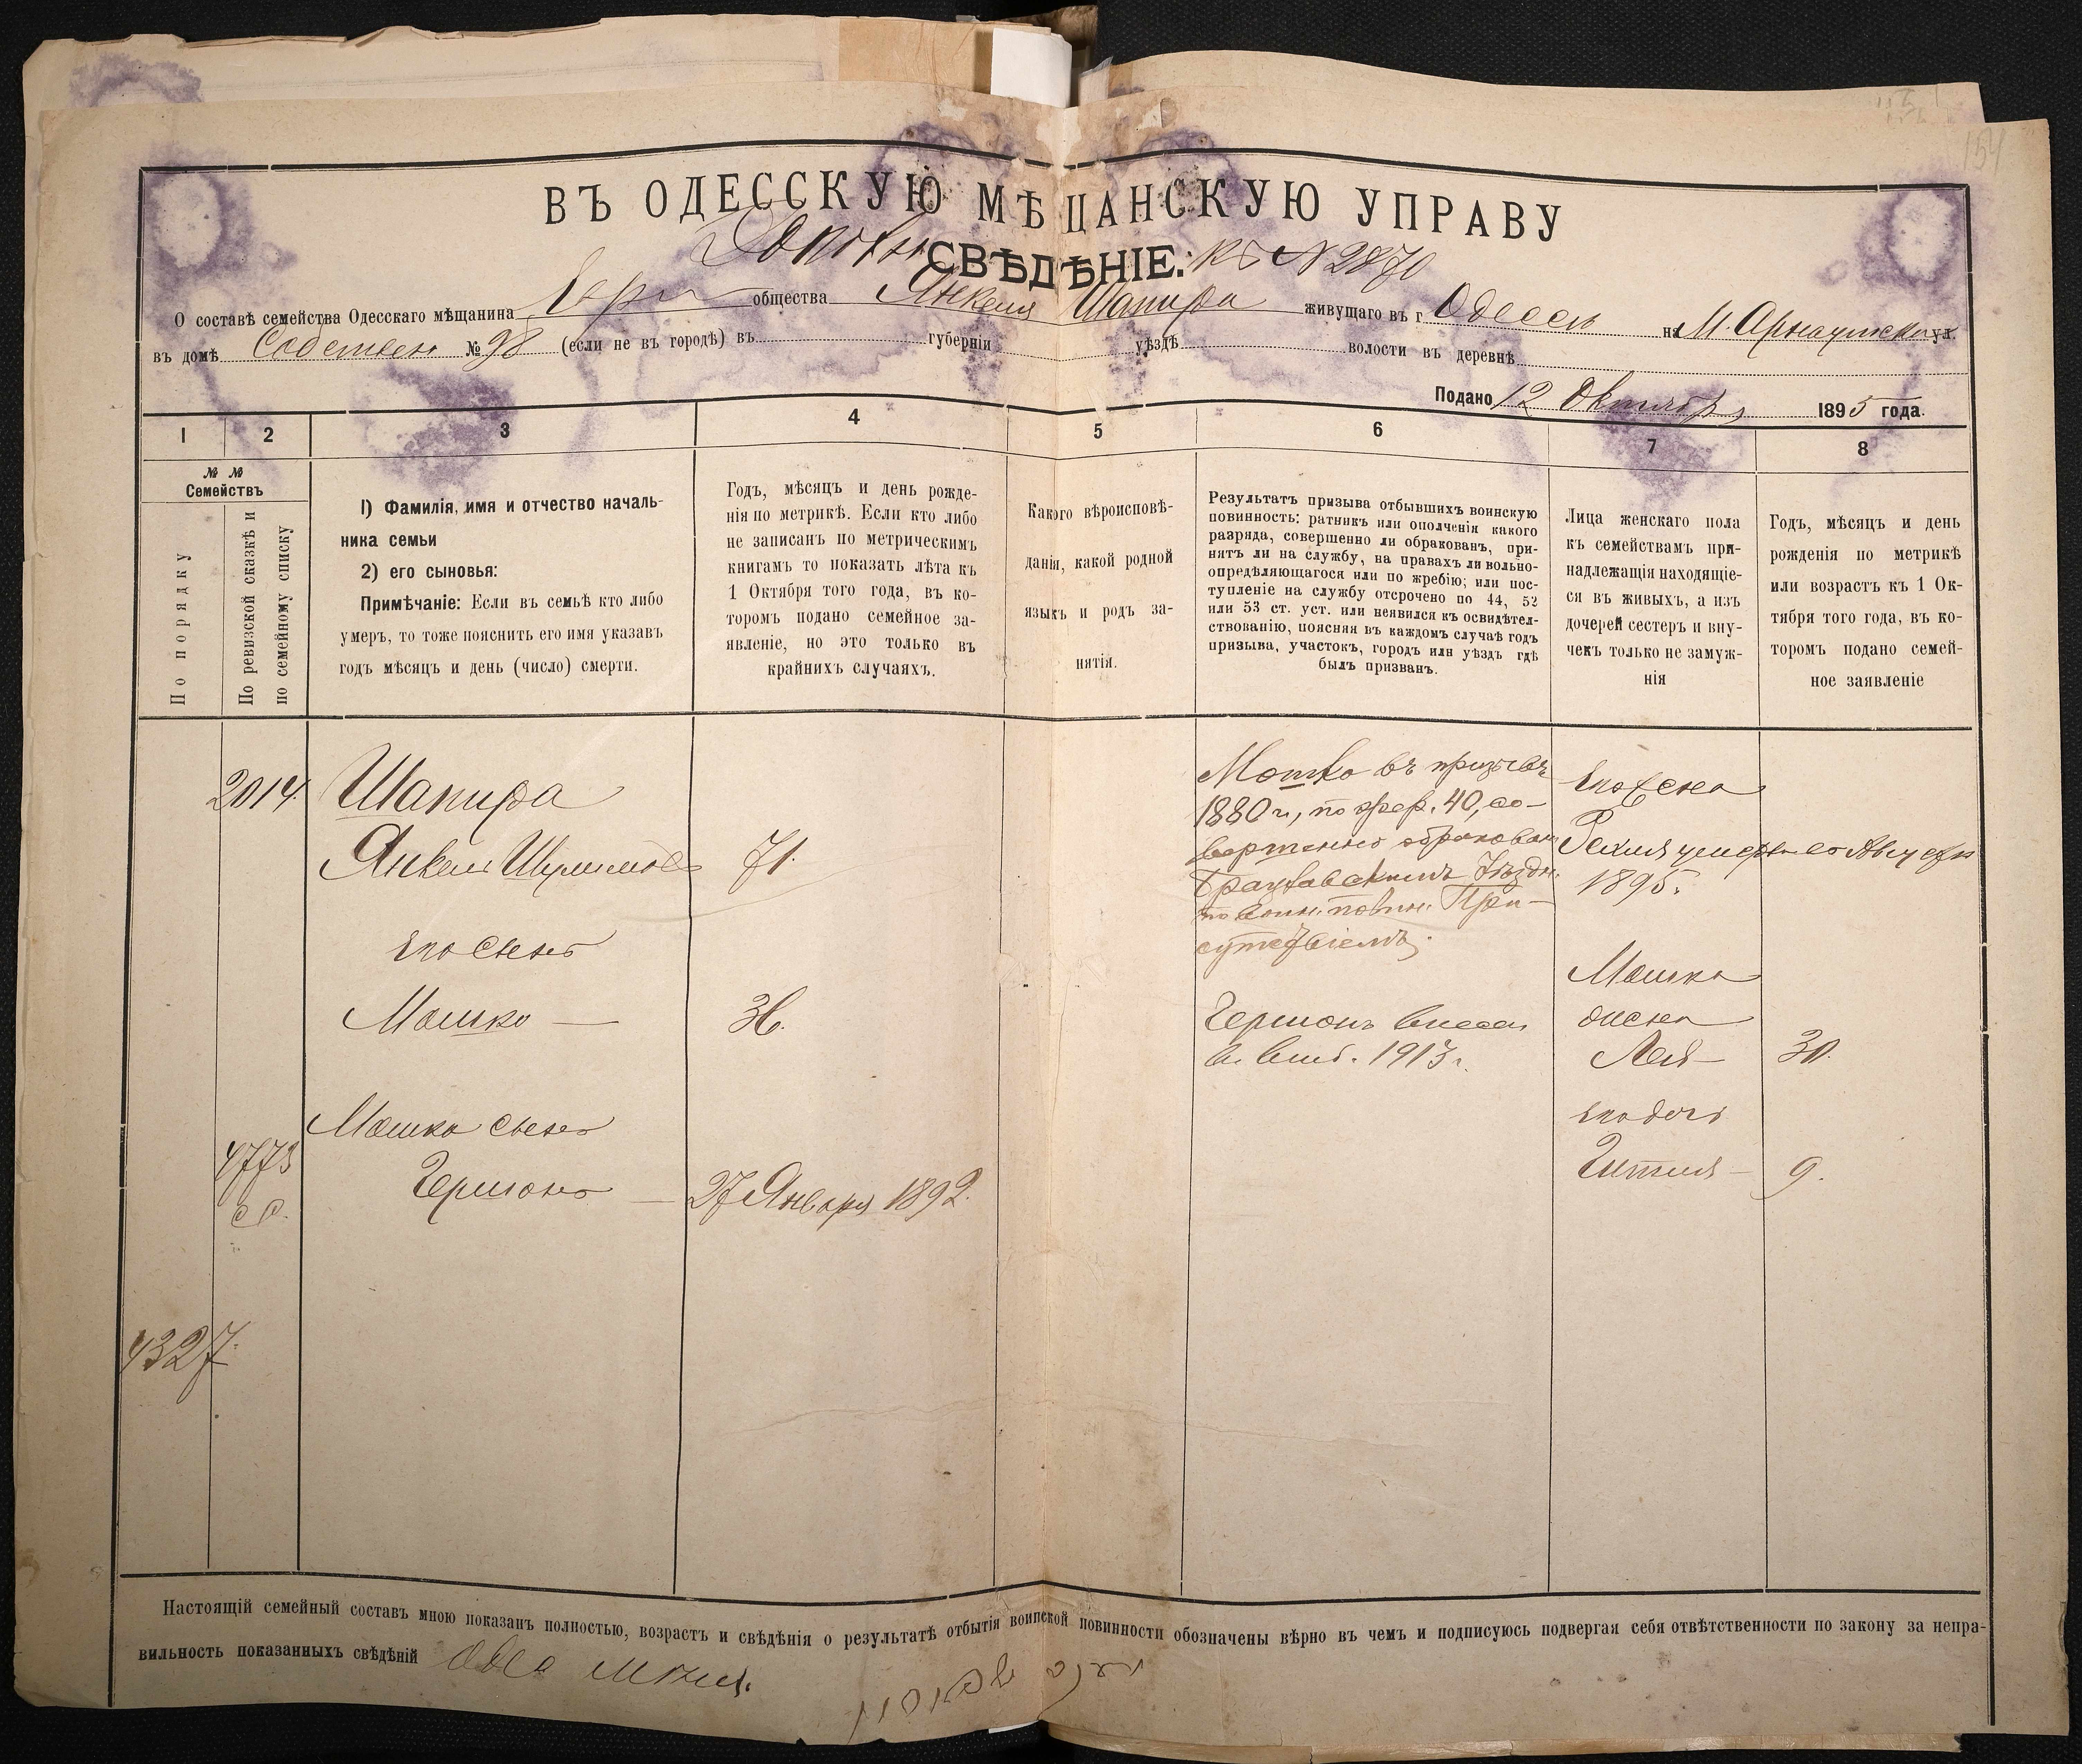 154
ВЪ ОДЕССКУЮ МѢЩАНСКУЮ УПРАВУ
СВѢДѢНІЕ. къ № 2870
О составѣ семейства Одесскаго мѣщанина Евр общества Янкеля Шапира живущаго въ г. Одессѣ на М. Арнаутской ул.
въ домѣ Собствен № 98 (если не въ городѣ) въ губерніи уѣздѣ волости въ деревнѣ
Подано 12 Октября 1895 года.
1 2 3 4 5 6 7 8
№ № Семействъ
По порядку
По ревизской сказкѣ и по семейному списку
1) Фамилія, имя и отчество началь-
ника семьи
2) его сыновья:
Примѣчаніе: Если въ семьѣ кто либо
умеръ, то тоже пояснить его имя указавъ
годъ мѣсяцъ и день (число) смерти.
Годъ, мѣсяцъ и день рожде-
нія по метрикѣ. Если кто либо
не записанъ по метрическимъ
книгамъ то показать лѣта къ
1 Октября того года, въ ко-
торомъ подано семейное за-
явленіе, но это только въ
крайнихъ случаяхъ.
Какого вѣроисповѣ-
данія, какой родной
языкъ и родъ за-
нятія.
Результатъ призыва отбывшихъ воинскую
повинность: ратникъ или ополченія какого
разряда, совершенно ли обракованъ, при-
нятъ ли на службу, на правахъ ли вольно-
опредѣляющагося или по жребію; или пос-
тупленіе на службу отсрочено по 44, 52
или 53 ст. уст. или неявился къ освидѣтел-
ствованію, поясняя въ каждомъ случаѣ годъ
призыва, участокъ, городъ или уѣздъ гдѣ
былъ призванъ.
Лица женскаго пола
къ семействамъ при-
надлежащія находящіе-
ся въ живыхъ, а изъ
дочерей сестеръ и вну-
чекъ только не замуж-
нія
Годъ, мѣсяцъ и день
рожденія по метрикѣ
или возрастъ къ 1 Ок-
тября того года, въ ко-
торомъ подано семей-
ное заявленіе
2014. Шапира
Янкель Шулимовъ 71.
его сынъ
Мошко — 36.
Мошка сынъ
4773
Гершонъ — 27 Января 1892.
4327.
Мошко въ призывѣ
1880 г., по жереб. 40, со-
вершенно обракованъ
Уѣздн.
по воин. повин. При-
сутствіемъ.
Гершонъ внесен
1913 г.
его жена
умерла Августа
1895.
Мошка
жена
Лея — 30.
его дочь
Гитля — 9.
Настоящій семейный составъ мною показанъ полностью, возрастъ и свѣдѣнія о результатѣ отбытія воинской повинности обозначены вѣрно въ чемъ и подписуюсь подвергая себя отвѣтственности по закону за непра-
вильность показанныхъ свѣдѣній